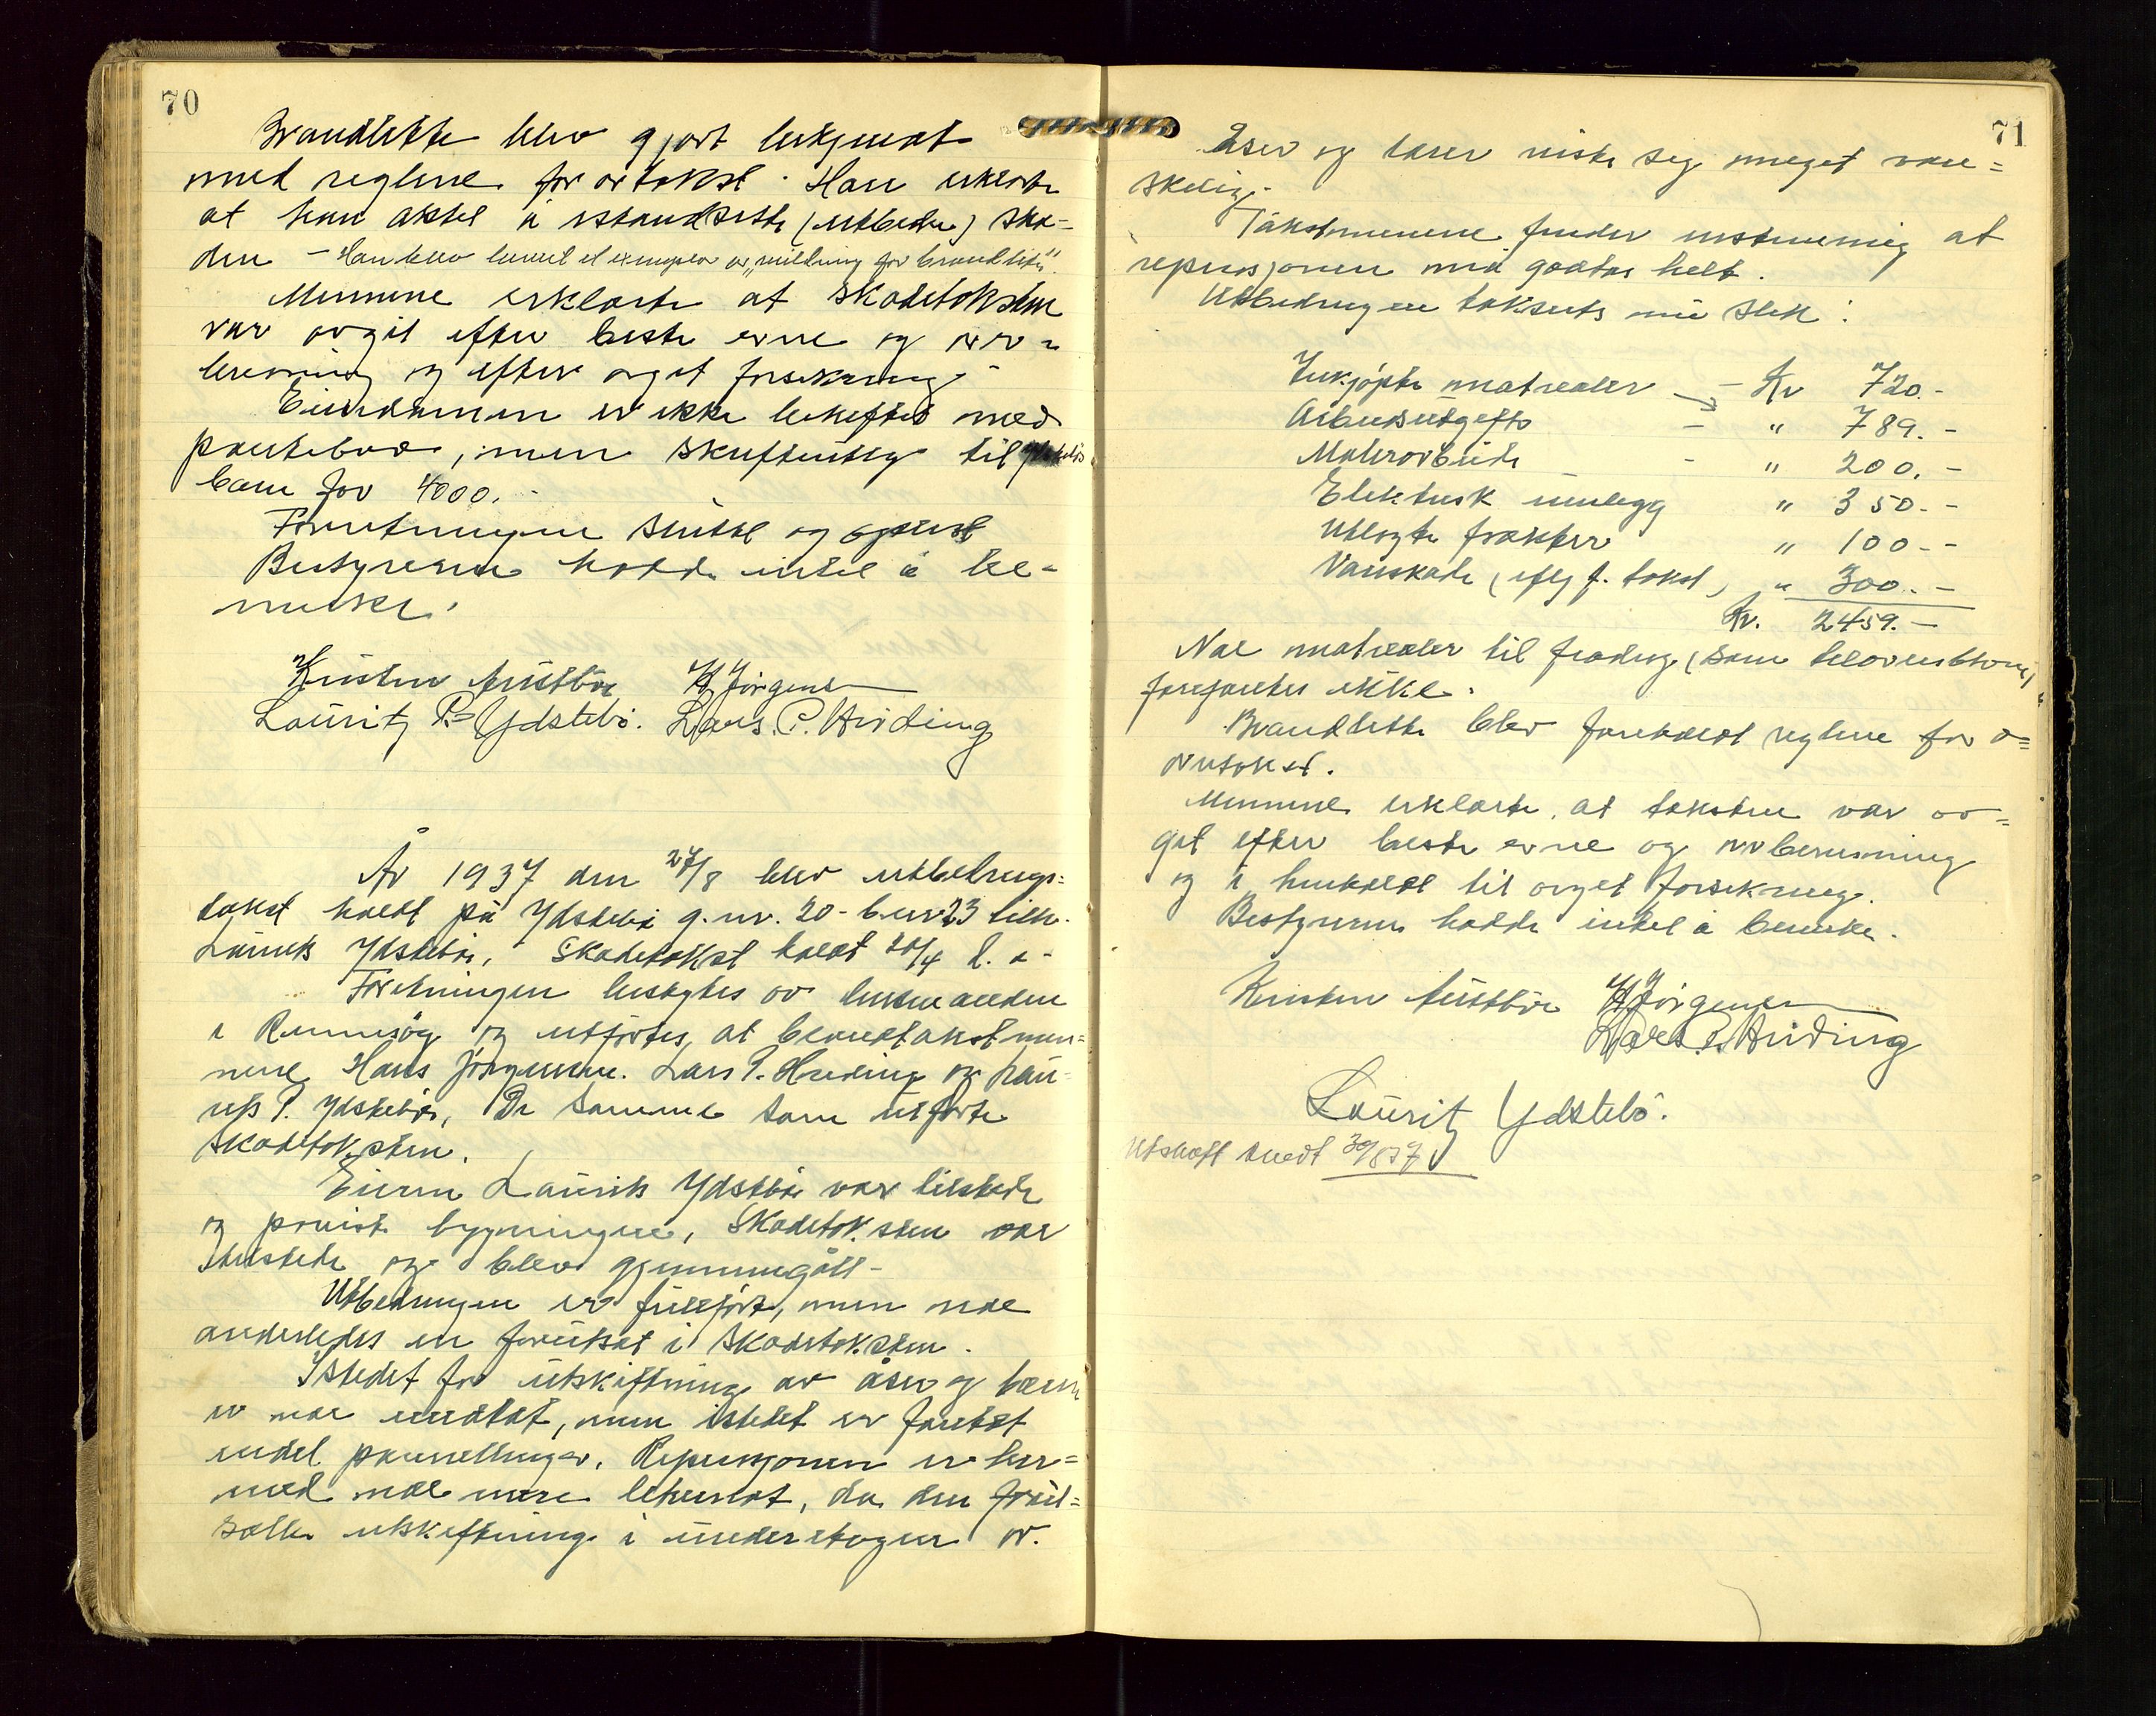 70
Brandlidte blev gjort bekjendt
med reglene for ortakst. Han erklærte
at han aktet å istandsette (utbedre) ska=
den - Han blev levert et exemplar av "veildning for brandlidte".
Mennene erklærte at skadetaksten
var avgit efter beste evne og over=
bevisning og efter avgit forsikring -
Eiendommen er ikke beheftet med
pantebrev, men skriftenlig til
barn for 4000.-
Forretningen sluttet og oplæst
Bestyreren hadde intet å be-
merke.
Kristen Austbø H Jörgensen
Lauritz P. Ydstebö. Lars. P. Hviding
År 1937 den 27/8 blev utbedrings=
takst holdt på Ydstebø g.nr. 20 - b.nr 23 tilh.
Lauritz Ydstebø, Skadetakst holdt 20/4 d. a-
Forretningen bestyrtes av lensmanden
i Rennesøy og utförtes, at brandtakstmen=
nene Hans Jörgensen. Lars P. Hviding og Lau=
ritz P. Ydstebø, De samme som utførte
skadetaksten.
Eieren Lauritz Ydstebø var tilstede
og påviste bygningene, Skadetaksten var
tilstede og blev gjennemgått -
Utbedringen er fullført, men noe
anderledes en forutsat i skadetaksten.
Istedet for utskiftning av åser og barer
er noe undlat, men istedet er foretat
endel panellinger. Reperasjonen er her=
med noe mere bekostet, da den forut=
satte utskiftning i understagen av.
71
Åser og barer viste seg meget van=
skelig.
Takstmennene finder imidlertid at
reperasjonen må godtas helt.
Utbedringen takseres nu slik:
Innkjøpte matrealer - Kr 720.-
Arbeidsutgifte - " 789.-
Malerarbeide - " 200.-
Elektrisk innlegg " 350.-
Utlagte frakter " 100.-
Vanskade (eflg f. takst) " 300.-
Kr. 2459.-
Noe matrealer til fradrag (som
forefantes ikke.
Brandlidte blev foreholdt reglene for o=
vertakst.
Mennene erklærte, at taksten var av=
git efter beste evne og overbevisning
og i henhold til avgit forsikring.
Bestyreren hadde intet å bemerke.
Kristen Austbø H Jörgensen
Lars. P. Hviding
Lauritz Ydstebö.
Utskrift sendt 30/8 37